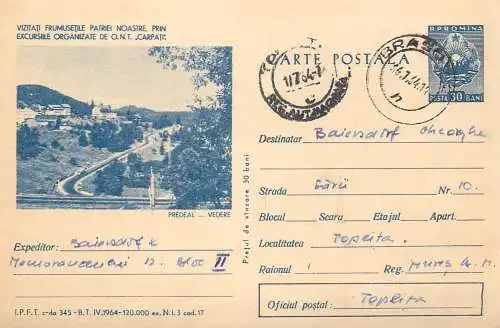 VIZITAȚI FRUMUSEȚILE PATRIEI NOASTRE, PRIN
EXCURSIILE ORGANIZATE DE O.N.T. „CARPAȚI”.
R.P.ROMINA
CARTE POSTALA
BRAȘOV
POSTA 30 BANI
Destinatar Baiersdorf Gheorghe
Strada Gării Nr. 10.
Blocul Scara Etajul Apart.
PREDEAL ... VEDERE
Prețul de vînzare 30 bani
Expeditor: Baiersdorf E
12. Bloc II
Localitatea Toplița.
Raionul Reg. Mureș A. M.
Oficiul poștal: Toplița
I.P.F.T. c-da 345 - B.T. IV.1964-120.000 ex. N.I. 3 cad. 17